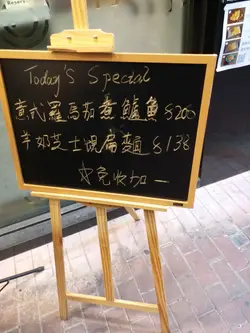 Today's Special
意式羅馬茄煮鱸魚 $208
羊奶芝士焗扁麵 $138
另免收加一